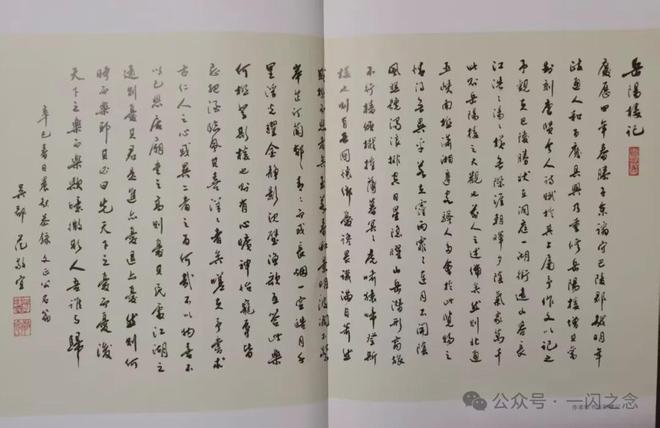 岳陽樓記
慶曆四年春滕子京謫守巴陵郡越明年
政通人和百廢具興乃重修岳陽樓增其舊
制刻唐賢今人詩賦於其上屬予作文以記之
予觀夫巴陵勝狀在洞庭一湖銜遠山吞長
江浩浩湯湯橫無際涯朝暉夕陰氣象萬千
此則岳陽樓之大觀也前人之述備矣然則北通
巫峽南極瀟湘遷客騷人多會於此覽物之
情得無異乎若夫霪雨霏霏連月不開陰
風怒號濁浪排空日星隱曜山岳潛形商旅
不行檣傾楫摧薄暮冥冥虎嘯猿啼登斯
樓也則有去國懷鄉憂讒畏譏滿目蕭然
而悲者矣至若春和景明波瀾不驚
岸芷汀蘭郁郁青青而或長煙一空皓月千
里浮光躍金靜影沉璧漁歌互答此樂
何極登斯樓也則有心曠神怡寵辱皆
忘把酒臨風其喜洋洋者矣嗟夫予嘗求
古仁人之心或異二者之為何哉不以物喜不
以己悲居廟堂之高則憂其民處江湖之
遠則憂其君是進亦憂退亦憂然則何
時而樂耶其必曰先天下之憂而憂後
天下之樂而樂歟噫微斯人吾誰與歸
辛巳春日 錄文正公
吳郡范敬宜
公众号·一闪之念